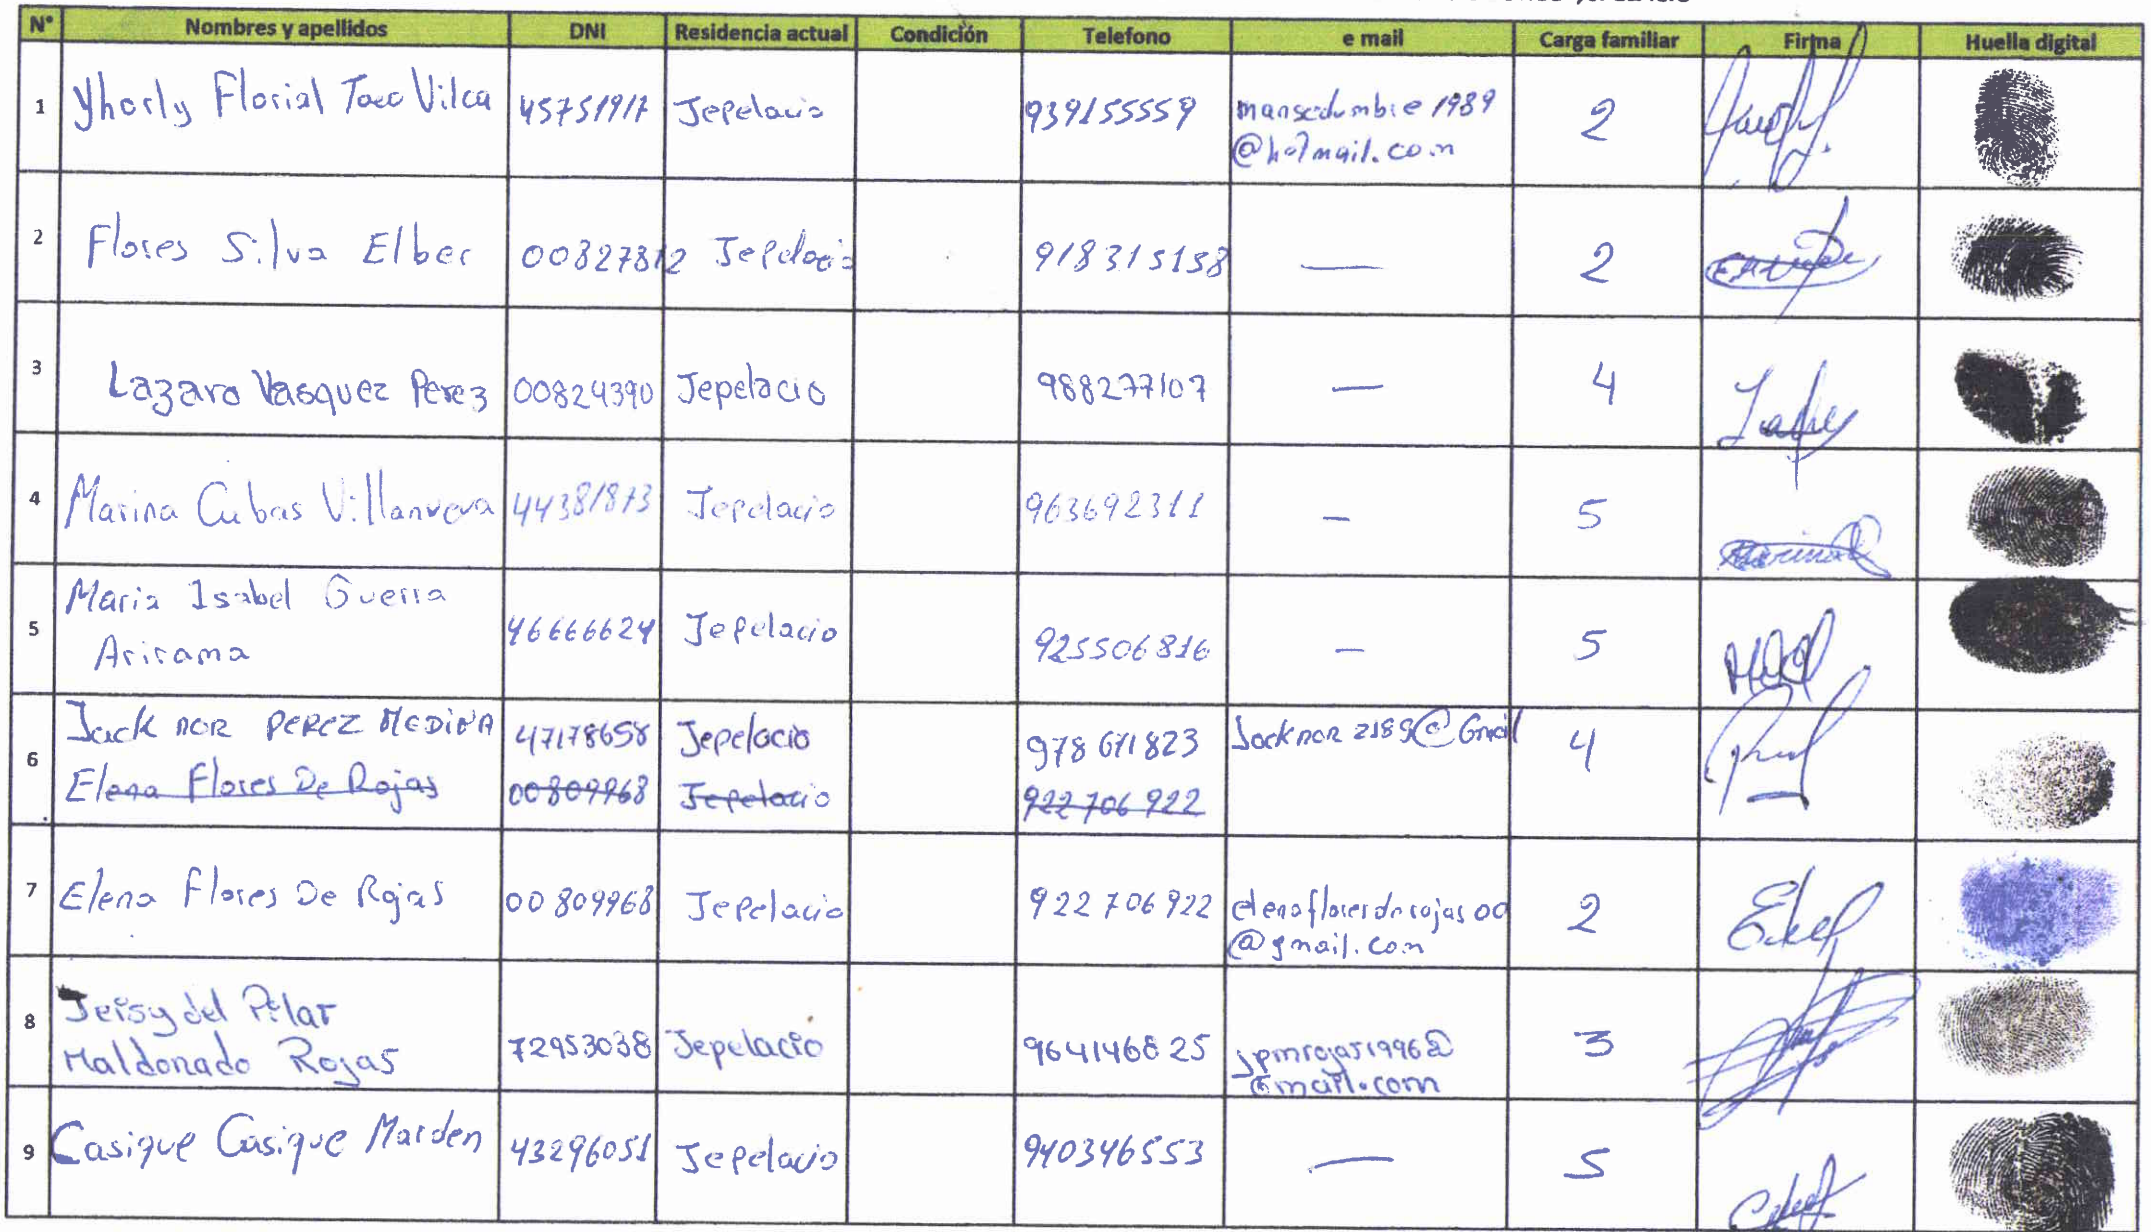 N° Nombres y apellidos DNI Residencia actual Condición Telefono e mail Carga familiar Firma Huella digital
1 Yhorly Florial Taco Vilca 45751917 Jepelacio 939155559 mansedumbre 1989 2
@hotmail.com
2 Flores Silva Elber 00827812 Jepelacio 918315158 — 2
3 Lazaro Vasquez Perez 00824390 Jepelacio 988277107 — 4
4 Marina Cubas Villanueva 44381873 Jepelacio 963692311 — 5
Maria Isabel Guerra
5 46666624 Jepelacio 925506816 — 5
Arirama
Jack nor PEREZ MEDINA 47178658 Jepelacio 978 611 823 Jacknor 2189@Gmail 4
6
Elena Flores De Rojas 00809968 Jepelacio 922 706 922
7 Elena Flores De Rojas 00809968 Jepelacio 922 706 922 elenafloresderojas00 2
@gmail.com
Jeisy del Pilar
8 Maldonado Rojas 72953038 Jepelacio 964146825 jpmrojas1996@ 3
Gmail.com
9 Casique Casique Marden 43296051 Jepelacio 940346553 — 5